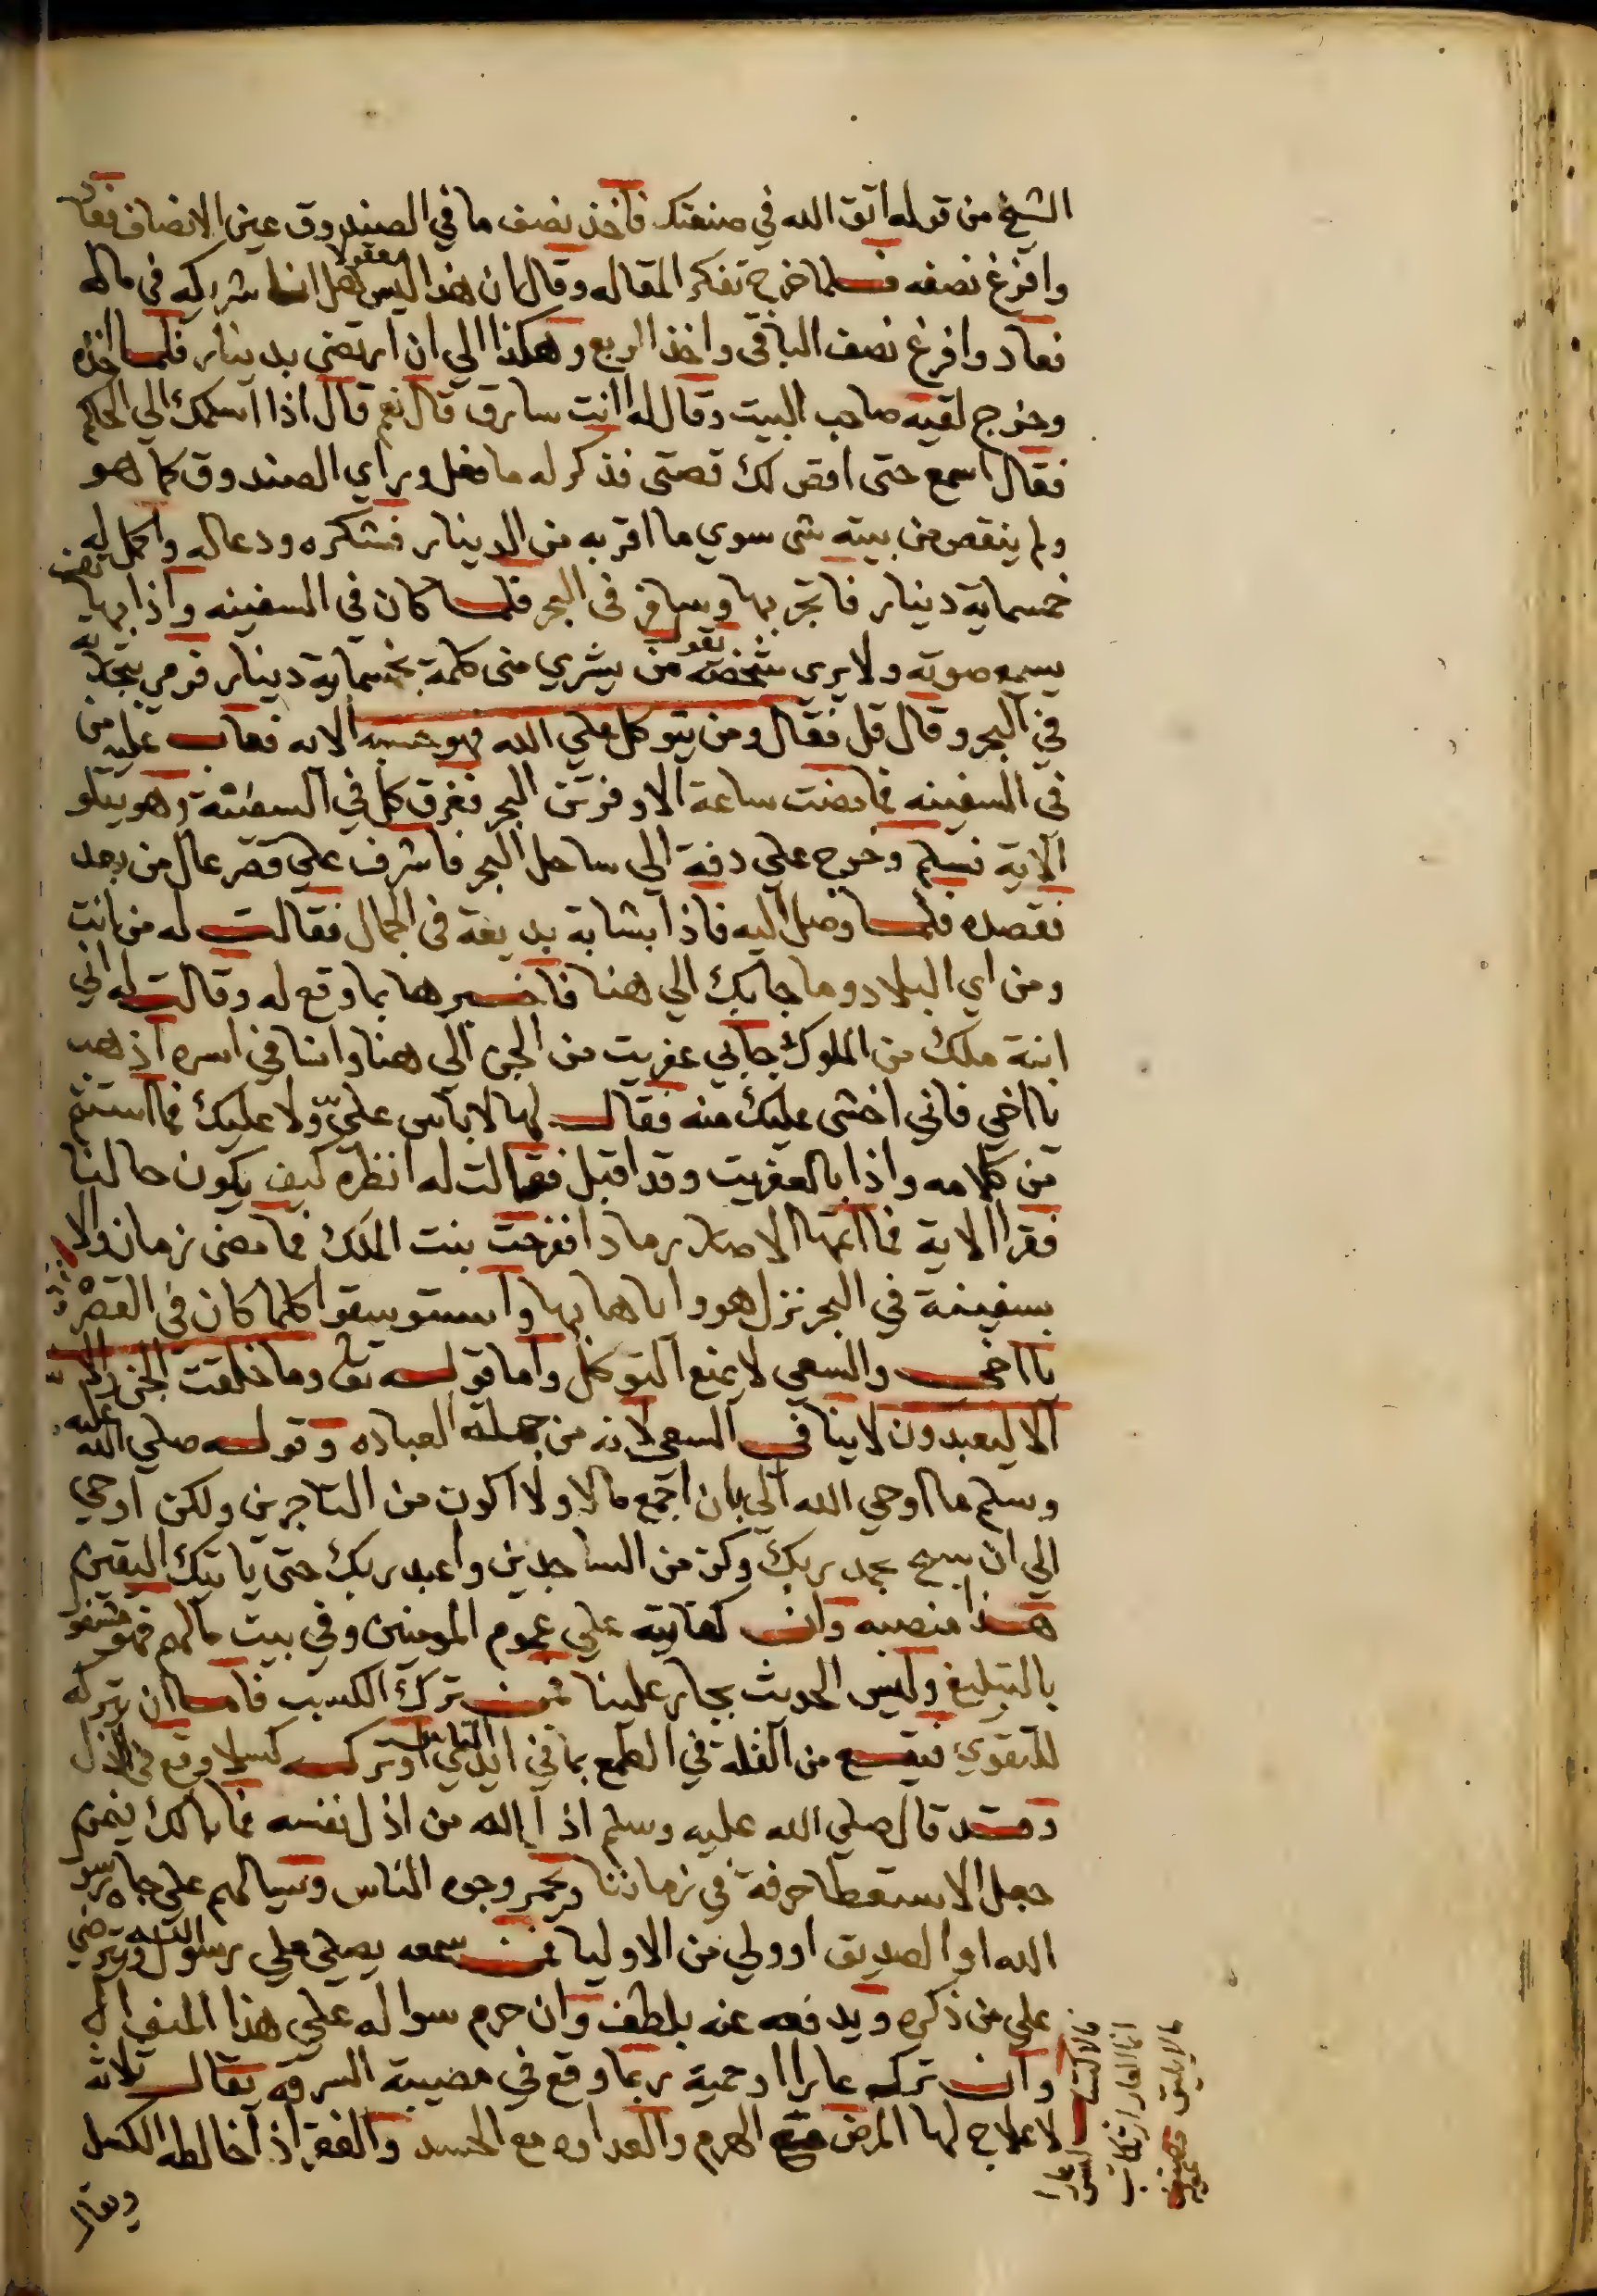 الشيخ من قوله اتق الله في صنعتك فاخذ نصف ما في الصندوق عين الانصاف فعاد
وافرغ نصفه فلما خرج تفكر المقاله وقال ان هذا ليس معقولا هل انا شريكه في ماله
فعاد وافرغ نصف الباقي واخذ الربع وهكذا الي ان ارتضى بدينار فلما اخذه
وخرج لقيه صاحب البيت وقال له اانت سارق قال نعم قال اذا اسلمك الي الحاكم
فقال اسمع حتى اقص لك قصتى فذكر له ما فعل وراي الصندوق كما هو
ولم ينقص من بيته شى سوي ما اقر به من الدينار فشكره ودعا له واكمل له
خمسماية دينار فاتجر بها وسافر فى البحر فلما كان في السفينه واذا بهاتف
يسمع صوته ولا يري شخصه يقول من يشري منى كلمة بخمسماية دينار فرمي بتجارته
في البحر وقال قل فقال ومن يتوكل علي الله فهو حسبه الايه فعاب عليه من
في السفينه فما مضت ساعة الا وفرتن البحر فغرق كل في السفينة وهو يتلو
الاية فسلم وخرج علي دفة الي ساحل البحر فاشرف علي قصر عال من بعد
فقصده فلما وصل اليه فاذا بشابة بديعة فى الجمال فقالت له من انت
ومن اي البلاد وما جا بك الي هنا فاخبرها بما وقع له وقالت له اني
ابنة ملك من الملوك جابي عفريت من الجن الى هنا وانا في اسره اذهب
يا اخي فاني اخشى عليك منه فقال لها لا باس عليّ ولا عليك فما استتم
من كلامه واذا بالعفريت وقد اقبل فقالت له انظره كيف يكون حالنا
فقرا الاية فما اتمها الا صار رمادا ففرحت بنت الملك فما مضى زمان والا
بسفينة في البحر نزل هو واياها بها واستوسقوا كلما كان فى القصر
يا اخى والسعي لا يمنع التوكل واما قوله تعالى وما خلقت الجن والانس
الا ليعبدون لا ينافى السعي لانه من جملة العباده وقوله صلي الله عليه
وسلم ما اوحي الله الى بان اجمع مالا ولا اكون من التاجرين ولكن اوحي
الي ان سبح بحمد ربك وكن من الساجدين واعبد ربك حتى ياتيك اليقين
هذا منصبه وان كفايته علي عموم المومنين وفي بيت مالهم فهو مشغول
بالتبليغ وليس الحديث بجار علينا فمن ترك الكسب فاما ان يتركه
للتقوي فيقع من الغله في الطمع بما في ايدي الناس او تركه كسلا وقع في الاذلال
وقد قال صلي الله عليه وسلم اذا الله من اذل نفسه فما بالك بمن
جعل الاستعطا حرفة في زماننا ويحمر وجوه الناس وسيالهم علي جاه رسول
الله او الصديق او ولي من الاوليا فمن سمعه يصلي علي رسول الله ويترضي
علي من ذكره ويدفعه عنه بلطف وان حرم سواله علي هذا المنوال
وان تركه عارا او حمية ربما وقع في مصيبة السرقه يقال ثلاثه
لا علاج لها المرض مع الهرم والعداوه مع الحسد والفقر اذا خالطه الكسل
ويقال